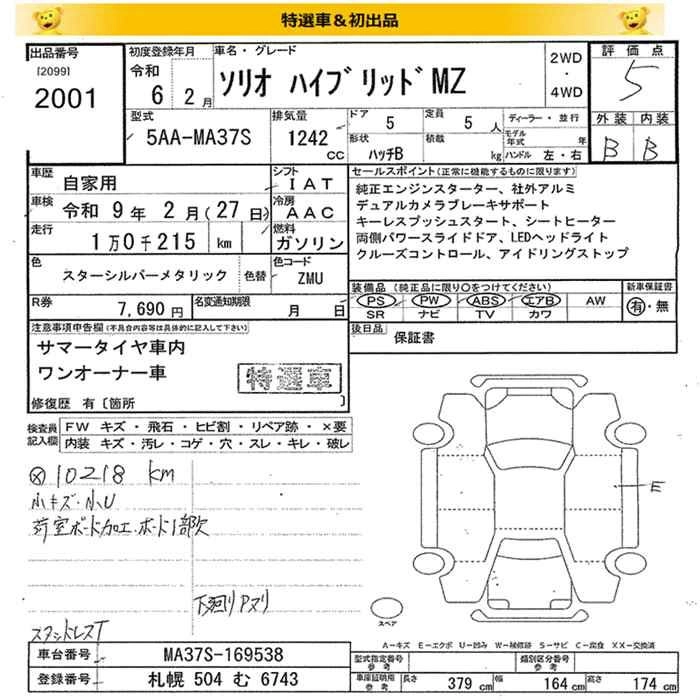 特選車＆初出品
出品番号
[2099]
2001
初度登録年月
令和
6 2月
車名・グレード
ソリオ ハイブリッドMZ
2WD
・
4WD
評価点
5
型式
5AA-MA37S
排気量
1242
cc
ドア
5
定員
5 人
形状
ハッチB
積載
kg
ディーラー・並行
モデル年式 年
ハンドル 左・右
外装 内装
B B
車歴
自家用
シフト
IAT
車検
令和 9年 2月(27日)
冷房
AAC
走行
1万0千215 km
燃料
ガソリン
色
スターシルバーメタリック
色替
色コード
ZMU
R券
7,690円
名変通知期限
月 日
セールスポイント(正常に機能するものに限ります)
純正エンジンスターター、社外アルミ
デュアルカメラブレーキサポート
キーレスプッシュスタート、シートヒーター
両側パワースライドドア、LEDヘッドライト
クルーズコントロール、アイドリングストップ
装備品 (純正品に限り〇をつけてください)
PS PW ABS エアB AW
SR ナビ TV カワ
新車保証書
有・無
後日品
保証書
注意事項申告欄(不具合内容等は具体的に記入して下さい)
サマータイヤ車内
ワンオーナー車
特選車
修復歴 有〔箇所 〕
検査員
記入欄
FW キズ・飛石・ヒビ割・リペア跡・×要
内装 キズ・汚レ・コゲ・穴・スレ・キレ・破レ
10218 km
小キズ・小U
荷室ボード加工、ボード1部欠
下廻りPヌリ
スタッドレスT
E
スペア
A－キズ E－エクボ U－凹み W－補修跡 S－サビ C－腐食 XX－交換済
車台番号
MA37S-169538
登録番号
札幌 504 む 6743
型式指定番号
参考
類別区分番号
参考
車庫証明用
参考
長さ 379 cm 幅 164 cm 高さ 174 cm